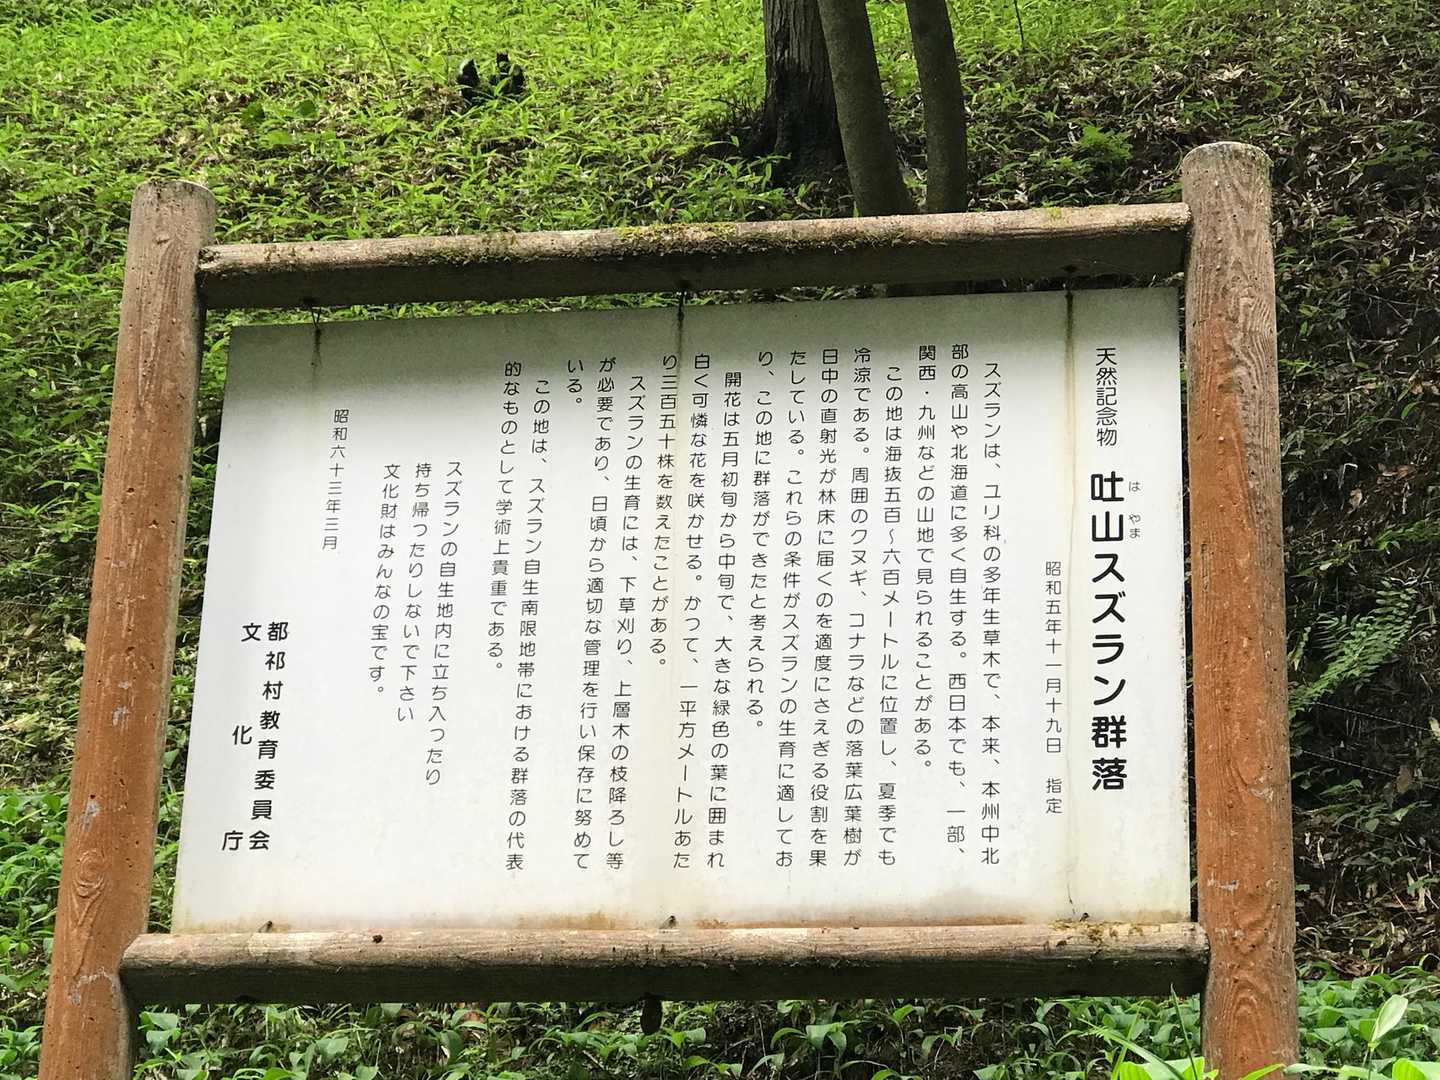 天然記念物 吐山スズラン群落
はやま
昭和五年十一月十九日 指定
スズランは、ユリ科の多年生草木で、本来、本州中北
部の高山や北海道に多く自生する。西日本でも、一部、
関西・九州などの山地で見られることがある。
この地は海抜五百〜六百メートルに位置し、夏季でも
冷涼である。周囲のクヌギ、コナラなどの落葉広葉樹が
日中の直射光が林床に届くのを適度にさえぎる役割を果
たしている。これらの条件がスズランの生育に適してお
り、この地に群落ができたと考えられる。
開花は五月初旬から中旬で、大きな緑色の葉に囲まれ
白く可憐な花を咲かせる。かつて、一平方メートルあた
り三百五十株を数えたことがある。
スズランの生育には、下草刈り、上層木の枝降ろし等
が必要であり、日頃から適切な管理を行い保存に努めて
いる。
この地は、スズラン自生南限地帯における群落の代表
的なものとして学術上貴重である。
スズランの自生地内に立ち入ったり
持ち帰ったりしないで下さい
文化財はみんなの宝です。
昭和六十三年三月
都祁村教育委員会
文化庁